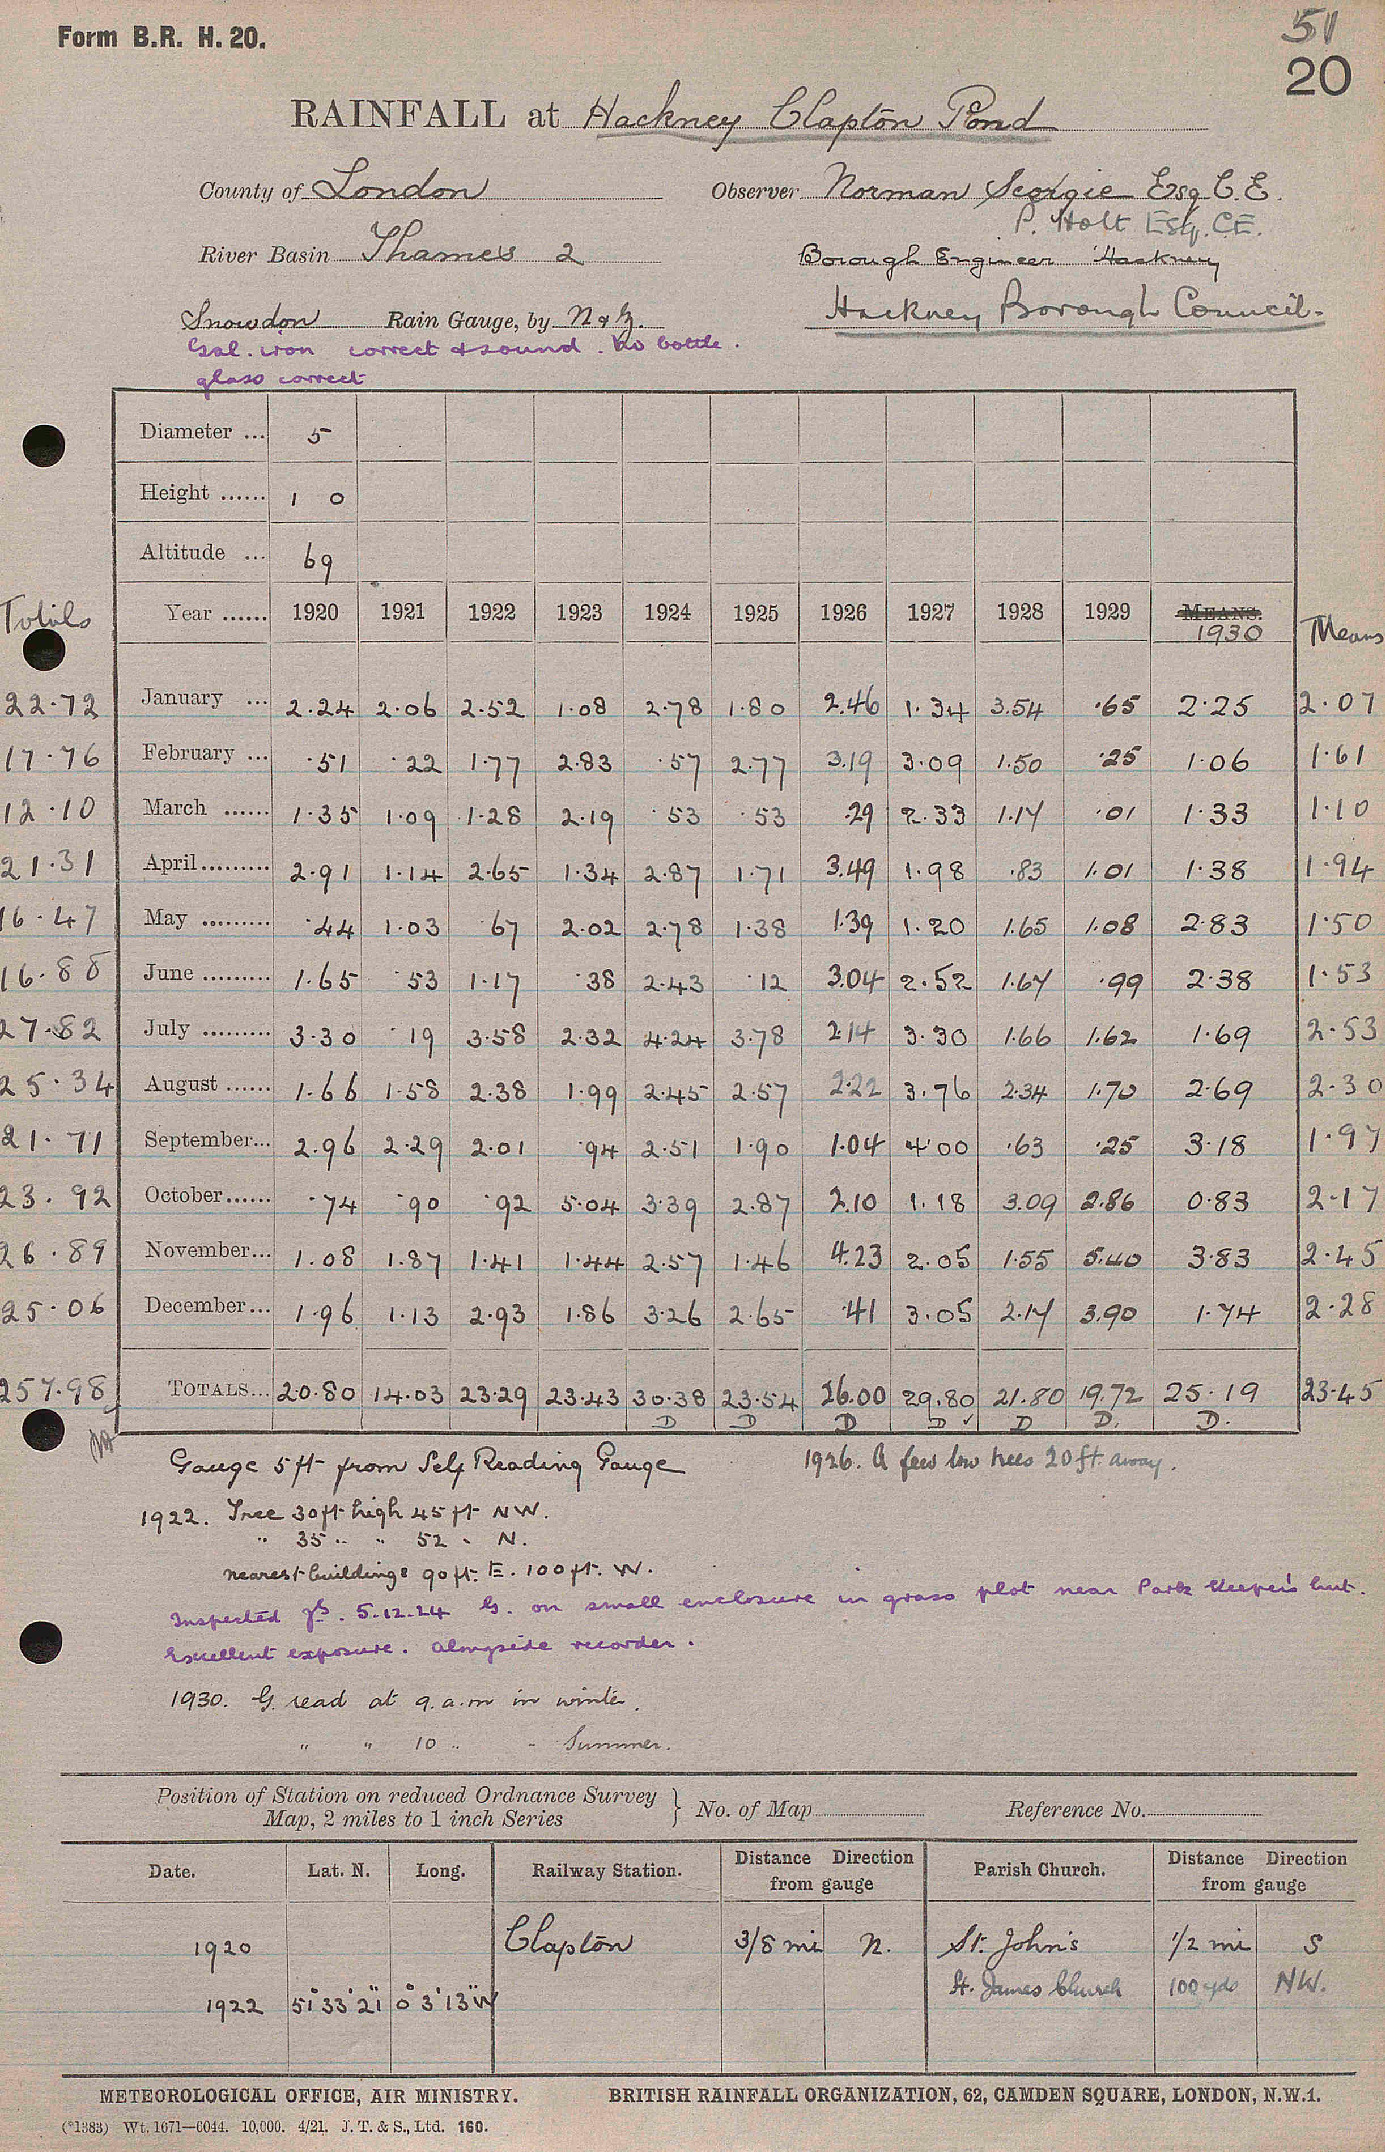 Form B.R. H. 20.
51
20
RAINFALL at Hackney Clapton Pond
County of London Observer Norman Scorgie Esq C.E.
P. Holt Esq. CE.
River Basin Thames 2 Borough Engineer Hackney
Snowdon Rain Gauge, by N & Z. Hackney Borough Council.
Gal. iron correct & sound. No bottle.
glass correct
Diameter ... 5
Height ...... 1 0
Altitude ... 69
Totals Year ...... 1920 1921 1922 1923 1924 1925 1926 1927 1928 1929 MEANS. 1930 Means
22.72 January ... 2.24 2.06 2.52 1.08 2.78 1.80 2.46 1.34 3.54 .65 2.25 2.07
17.76 February ... .51 .22 1.77 2.83 .57 2.77 3.19 3.09 1.50 .25 1.06 1.61
12.10 March ...... 1.35 1.09 1.28 2.19 .53 .53 .29 2.33 1.17 .01 1.33 1.10
21.31 April......... 2.91 1.14 2.65 1.34 2.87 1.71 3.49 1.98 .83 1.01 1.38 1.94
16.47 May ......... .44 1.03 .67 2.02 2.78 1.38 1.39 1.20 1.65 1.08 2.83 1.50
16.88 June ......... 1.65 .53 1.17 .38 2.43 .12 3.04 2.52 1.67 .99 2.38 1.53
27.82 July ......... 3.30 .19 3.58 2.32 4.24 3.78 2.14 3.30 1.66 1.62 1.69 2.53
25.34 August ...... 1.66 1.58 2.38 1.99 2.45 2.57 2.22 3.76 2.34 1.70 2.69 2.30
21.71 September... 2.96 2.29 2.01 .94 2.51 1.90 1.04 4.00 .63 .25 3.18 1.97
23.92 October...... .74 .90 .92 5.04 3.39 2.87 2.10 1.18 3.09 2.86 0.83 2.17
26.89 November... 1.08 1.87 1.41 1.44 2.57 1.46 4.23 2.05 1.55 5.40 3.83 2.45
25.06 December... 1.96 1.13 2.93 1.86 3.26 2.65 .41 3.05 2.17 3.90 1.74 2.28
257.98 TOTALS... 20.80 14.03 23.29 23.43 30.38 23.54 26.00 29.80 21.80 19.72 25.19 23.45
D D D D ✓ D D. D.
Gauge 5 ft from Self Reading Gauge 1926. A few low trees 20 ft. away.
1922. Tree 30 ft high 45 ft NW.
" 35 " " 52 " N.
nearest buildings 90 ft. E. 100 ft. W.
Inspected 5.12.24 G. on small enclosure in grass plot near Park Keeper's hut.
Excellent exposure. alongside recorder.
1930. G. read at 9. a.m in winter.
" " 10 " " Summer.
Position of Station on reduced Ordnance Survey
Map, 2 miles to 1 inch Series } No. of Map Reference No.
Date. Lat. N. Long. Railway Station. Distance Direction from gauge Parish Church. Distance Direction from gauge
1920 Clapton 3/8 mi N. St. John's 1/2 mi S
St. James Church 100 yds NW.
1922 51°33'21" 0°3'13"W
METEOROLOGICAL OFFICE, AIR MINISTRY. BRITISH RAINFALL ORGANIZATION, 62, CAMDEN SQUARE, LONDON, N.W.1.
(*1383) Wt. 1671—6044. 10,000. 4/21. J. T. & S., Ltd. 160.